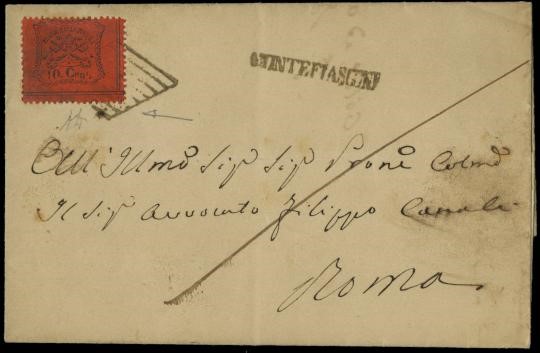 10. Cent.
MONTEFIASCONE
All' Illmo Sigr Sigr Prone Colmo
Il Sigr Avvocato Filippo Canali
Roma